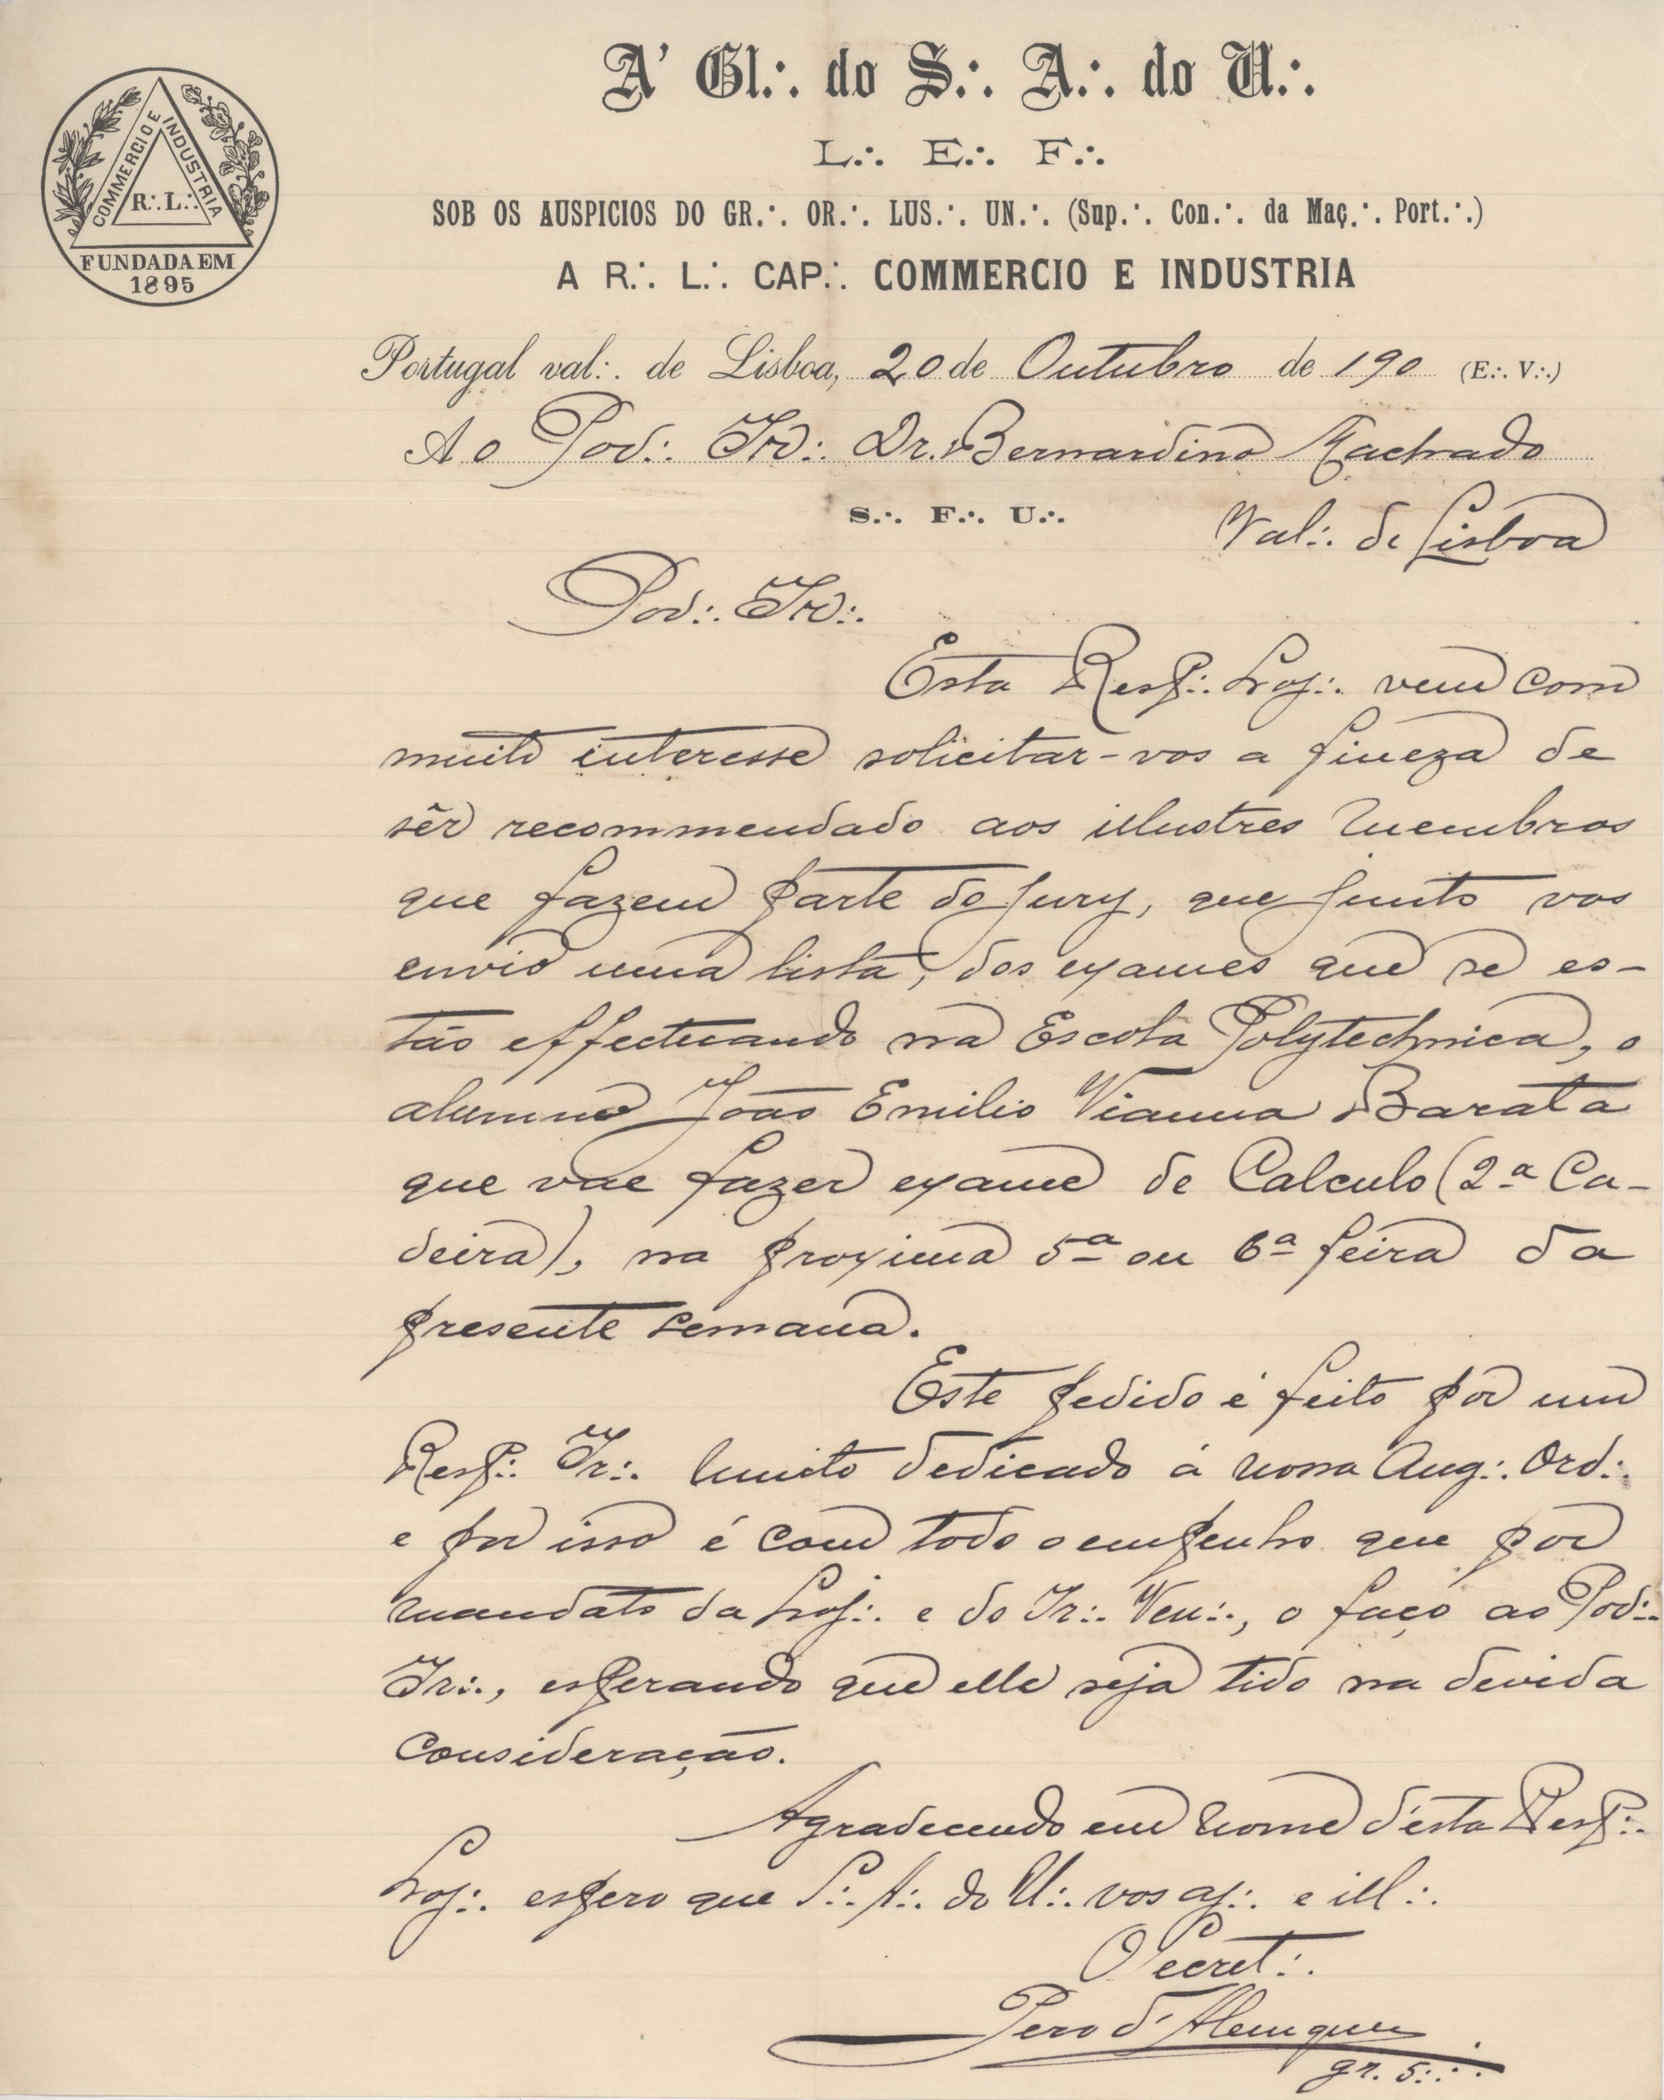 A' Gl.·. do S.·. A.·. do U.·.
L.·. E.·. F.·.
SOB OS AUSPICIOS DO GR.·. OR.·. LUS.·. UN.·. (Sup.·. Con.·. da Maç.·. Port.·.)
A R.·. L.·. CAP.·. COMMERCIO E INDUSTRIA
COMMERCIO E INDUSTRIA
R.·. L.·.
FUNDADA EM
1895
Portugal val.·. de Lisboa, 20 de Outubro de 190 (E.·. V.·.)
Ao Pod.·. Ir.·. Dr. Bernardino Machado
S.·. F.·. U.·.
Val.·. de Lisboa
Pod.·. Ir.·.
Esta Resp.·. Loj.·. vem com
muito interesse solicitar-vos a fineza de
sêr recommendado aos illustres membros
que fazem parte do Jury, que junto vos
envio uma lista, dos exames que se es-
tão effectuando na Escola Polytechnica, o
alumno João Emilio Vianna Barata
que vae fazer exame de Calculo (2ª Ca-
deira), na proxima 5ª ou 6ª feira da
presente semana.
Este pedido é feito por um
Resp.·. Ir.·. muito dedicado á nossa Aug.·. Ord.·.
e por isso é com todo o empenho que por
mandato da Loj.·. e do Ir.·. Ven.·., o faço ao Pod.·.
Ir.·., esperando que elle seja tido na devida
consideração.
Agradecendo em nome d'esta Resp.·.
Loj.·. espero que S.·. A.·. do U.·. vos aj.·. e ill.·.
O Secret.·.
Pero d'Alemquer
gr. 5.·.